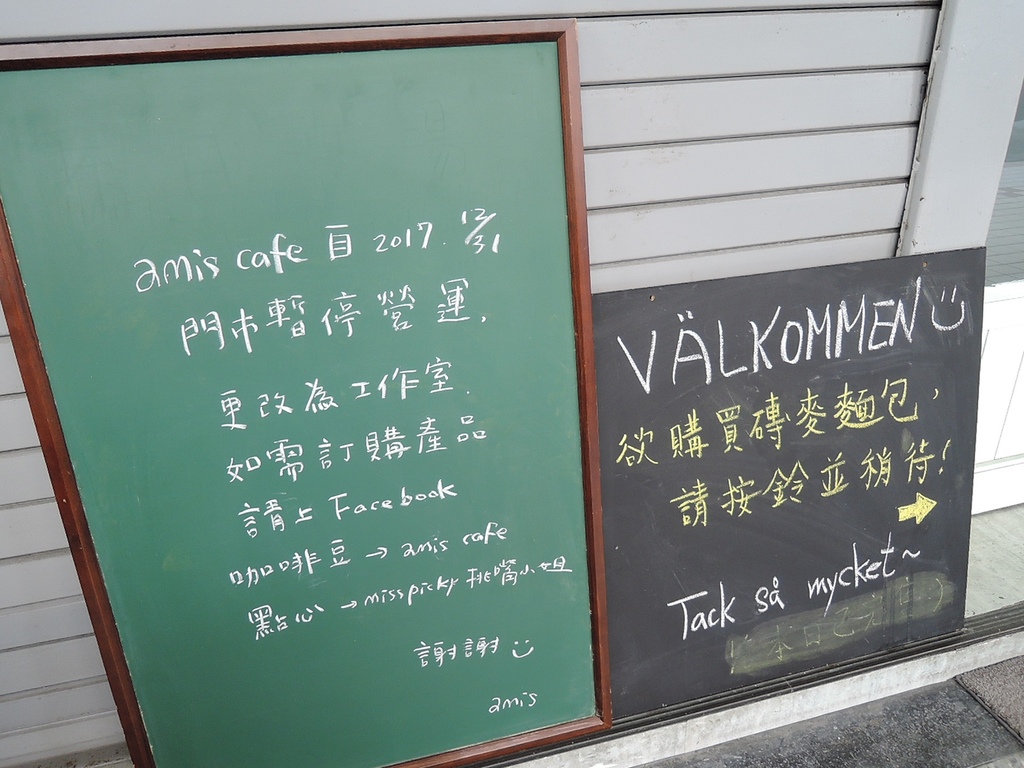 amis cafe 自 2017. 12/31
門市暫停營運,
更改為工作室.
如需訂購產品
請上 Facebook
咖啡豆 → amis cafe
點心 → misspicky 挑嘴小姐
謝謝 :)
amis
VÄLKOMMEN :)
欲購買磚麥麵包,
請按鈴並稍待!
→
Tack så mycket~
本日已